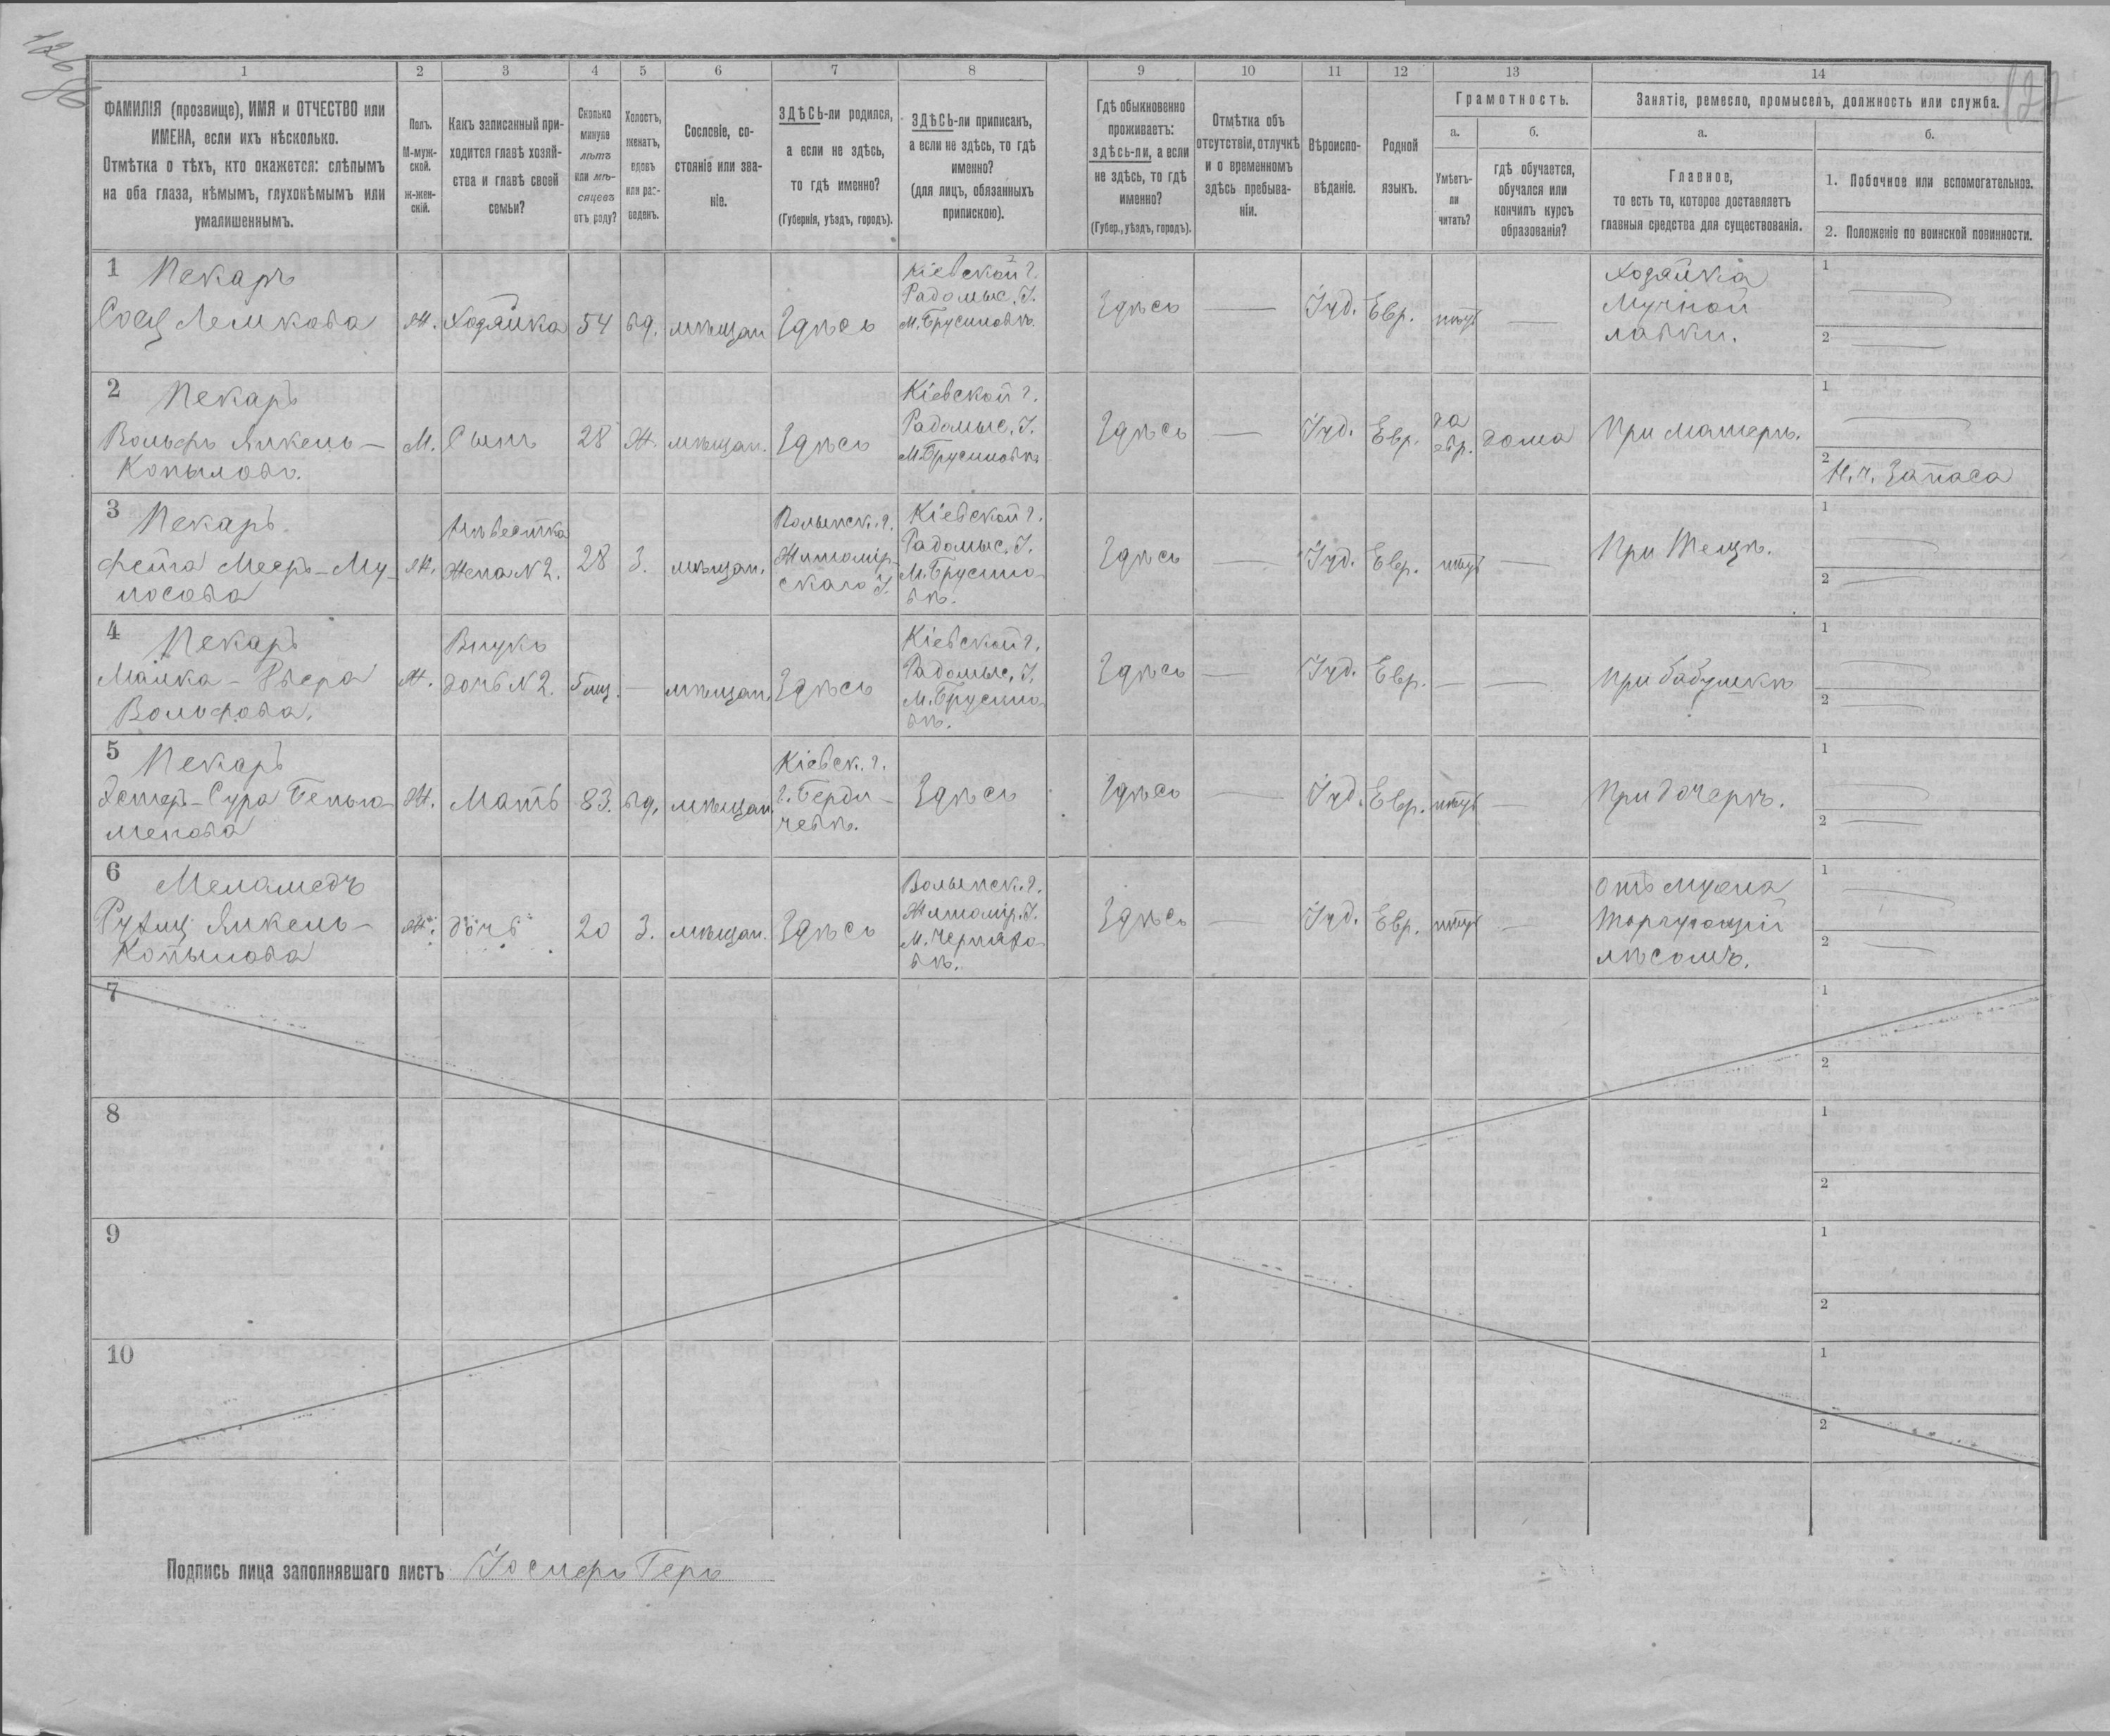 126
127
1 2 3 4 5 6 7 8 9 10 11 12 13 14
ФАМИЛІЯ (прозвище), ИМЯ и ОТЧЕСТВО или
ИМЕНА, если ихъ нѣсколько.
Отмѣтка о тѣхъ, кто окажется: слѣпымъ
на оба глаза, нѣмымъ, глухонѣмымъ или
умалишеннымъ.
Полъ.
М-муж-
ской.
ж-жен-
скій.
Какъ записанный при-
ходится главѣ хозяй-
ства и главѣ своей
семьи?
Сколько
минуло
лѣтъ
или мѣ-
сяцевъ
отъ роду?
Холостъ,
женатъ,
вдовъ
или раз-
веденъ.
Сословіе, со-
стояніе или зва-
ніе.
ЗДѢСЬ-ли родился,
а если не здѣсь,
то гдѣ именно?
(Губернія, уѣздъ, городъ).
ЗДѢСЬ-ли приписанъ,
а если не здѣсь, то гдѣ
именно?
(для лицъ, обязанныхъ
припискою).
Гдѣ обыкновенно
проживаетъ:
здѣсь-ли, а если
не здѣсь, то гдѣ
именно?
(Губер., уѣздъ, городъ).
Отмѣтка объ
отсутствіи, отлучкѣ
и о временномъ
здѣсь пребыва-
ніи.
Вѣроиспо-
вѣданіе.
Родной
языкъ.
Грамотность.
а.
Умѣетъ-
ли
читать?
б.
гдѣ обучается,
обучался или
кончилъ курсъ
образованія?
Занятіе, ремесло, промыселъ, должность или служба.
а.
Главное,
то есть то, которое доставляетъ
главныя средства для существованія.
б.
1. Побочное или вспомогательное.
2. Положеніе по воинской повинности.
1 Пекаръ
Лемкова
Ж.
Хозяйка
54
вд.
мѣщан.
Здѣсь
Кіевской г.
Радомыс. У.
М. Брусиловѣ.
Здѣсь
—
Іуд.
Евр.
нѣтъ
—
Хозяйка
Мучной
лавки.
1 —
2 —
2 Пекаръ
Вольфъ Янкель-
Копыловъ.
М.
Сынъ
28
Ж.
мѣщан.
Здѣсь
Кіевской г.
Радомыс. У.
М. Брусиловѣ
Здѣсь
—
Іуд.
Евр.
да
евр.
дома
При матерѣ.
1 —
2 Н. ч. Запаса
3 Пекаръ
Фейга Мееръ-
Ж.
Невестка
Жена N 2.
28
З.
мѣщан.
Волынск. г.
Житомір-
скаго У.
Кіевской г.
Радомыс. У.
М. Брусило-
вѣ.
Здѣсь
—
Іуд.
Евр.
нѣтъ
—
При Тещѣ.
1 —
2 —
4 Пекаръ
Малка-
Вольфова.
Ж.
Внука
дочь N 2.
5 мц.
—
мѣщан.
Здѣсь
Кіевской г.
Радомыс. У.
М. Брусило-
вѣ.
Здѣсь
—
Іуд.
Евр.
—
—
При бабушкѣ
1 —
2 —
5 Пекаръ
Эстеръ-Сура Беньа-
минова
Ж.
Мать
83.
вд.
мѣщан.
Кіевск. г.
г. Берди-
чевѣ.
Здѣсь
Здѣсь
—
Іуд.
Евр.
нѣтъ
—
При дочерѣ.
1 —
2 —
6 Меламедъ
Янкель-
Копылова
Ж.
дочь
20
З.
мѣщан.
Здѣсь
Волынск. г.
Житомір. У.
М. Черняхо-
вѣ.
Здѣсь
—
Іуд.
Евр.
нѣтъ
—
Отъ мужа
Торгующій
лѣсомъ.
1 —
2 —
7 1
2
8 1
2
9 1
2
10 1
2
Подпись лица заполнявшаго листъ